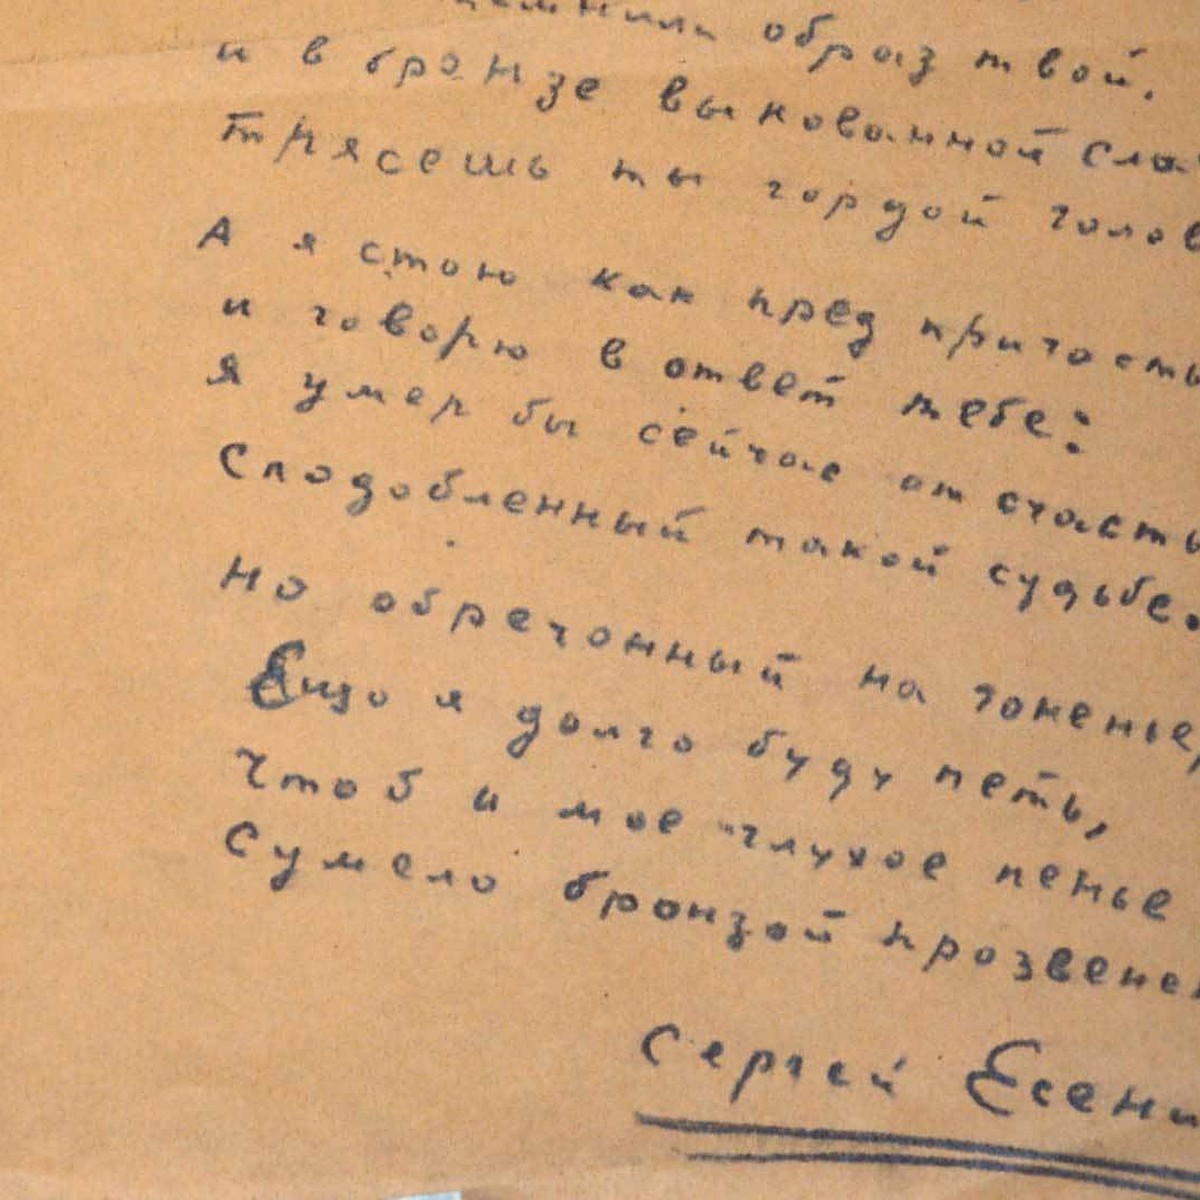 образ твой.
и в бронзе выкованной сла
Трясешь ты гордой голов
А я стою как пред причасть
и говорю в ответ тебе:
я умер бы сейчас от счасть
Сподобленный такой судьбе.
Но обречонный на гоненье,
Ещо я долго буду петь,
Чтоб и мое глухое пенье
Сумело бронзой прозвене
Сергей Есени